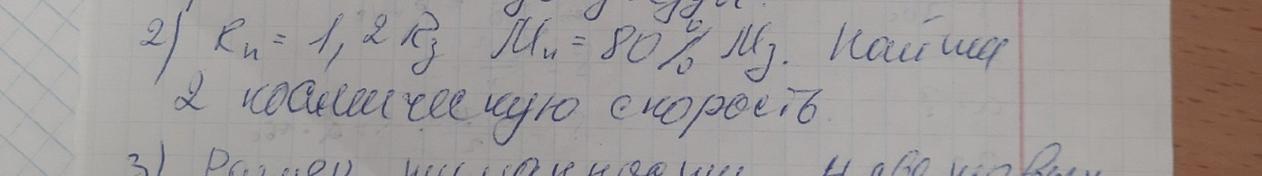 2) Rп = 1,2 Rз Mп = 80% Mз. Найти
2 космическую скорость.
3)